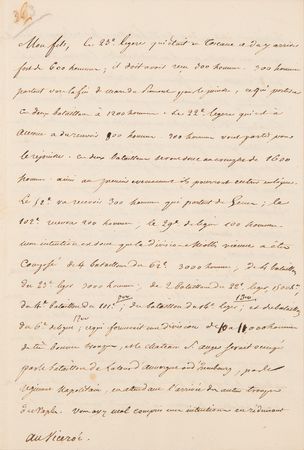 Mon fils, le 23e legere qui était en Toscane a du y arriver
fort de 600 hommes; il doit avoir reçu 300 hommes. 300 hommes
partent vers la fin de mars de pour le joindre, ce qui portera
ces deux bataillons à 1200 hommes. Le 22e legere qui est à
a du recevoir 800 hommes. 300 hommes vont partir pour
le rejoindre. ces deux bataillons seront donc au complet de 1600
hommes. ainsi au premier evenement ils pourront entrer en ligne.
Le 52e va recevoir 300 hommes qui partent de Gênes; le
102e recevra 200 hommes, le 29e de ligne 100 hommes.
mon intention est donc que la division Miollis vienne à être
composée de 4 bataillons du 62e 3000 hommes, de 4 bataillons
du 23e leger 3000 hommes; de 2 bataillons du 22e leger 1500 h.
du 4e bataillon du 101e 800; du bataillon du 16e leger; et du bataillon
du 6e de ligne; ce qui formerait une division de 10 à 11000 hommes
de très bonnes troupes, et le chateau St Ange serait occupé
par le bataillon de Latour d'auvergne et d'Isembourg, par le
régiment Napolitain, en attendant l'arrivée des autres troupes
de Naples. vous avez mal compris mon intention en réduisant
au Viceroi.